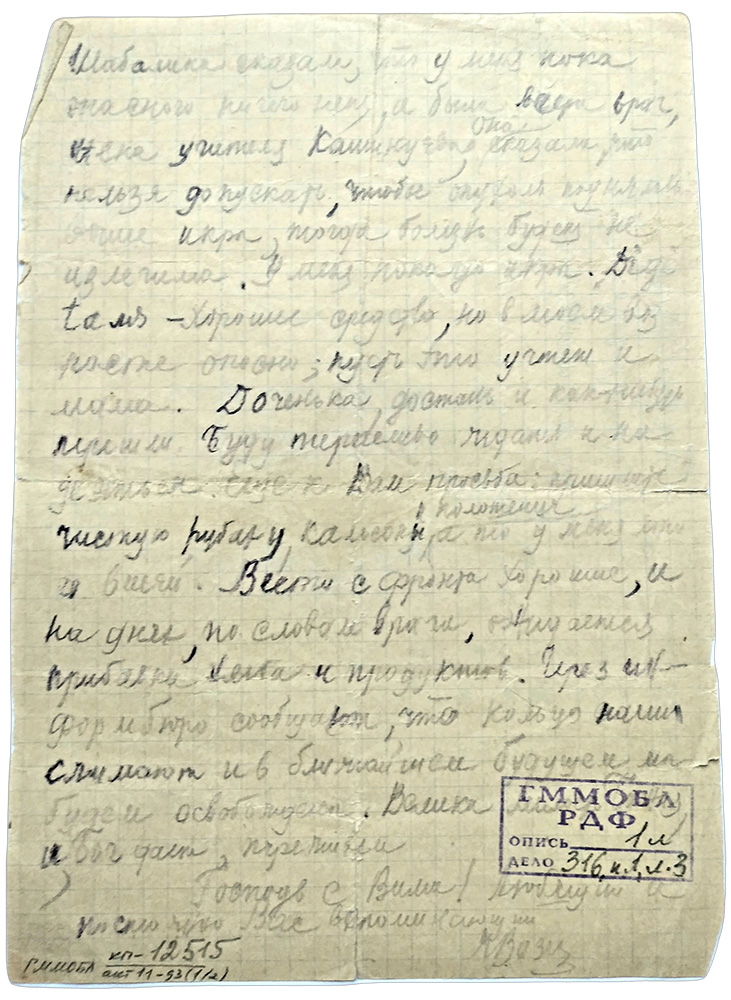 Шабалина сказала, что у меня пока
опасного ничего нет, а была вчера врач,
жена учителя она сказала, что
нельзя допускать, чтобы опухоль поднялась
выше икр, тогда болезнь будет не
излечима. У меня пока до икр. Digi
talis – хорошее средство, но в моем воз
расте опасно; пусть это учтет и
мама. Доченька, достань и как-нибудь
пришли. Буду терпеливо ждать и на-
деяться. Еще к Вам просьба: пришлите
чистую рубаху, кальсоны, положенце а то у меня
и вшей. Вести с фронта хорошие, и
на днях, по словам врача, ожидается
прибавка хлеба и продуктов. Через ин-
формбюро сообщают, что кольцо наши
сжимают и в ближайшем будущем мы
будем освобождены. Велика милость
и Бог даст, переживем
Господь с Вами! Любящий и
постоянно Вас вспоминающий
ГММОБЛ
РДФ
ОПИСЬ 1л
ДЕЛО 316, к.1, л.3
ГММОБЛ кп-12515
акт 11-93 (1/2)